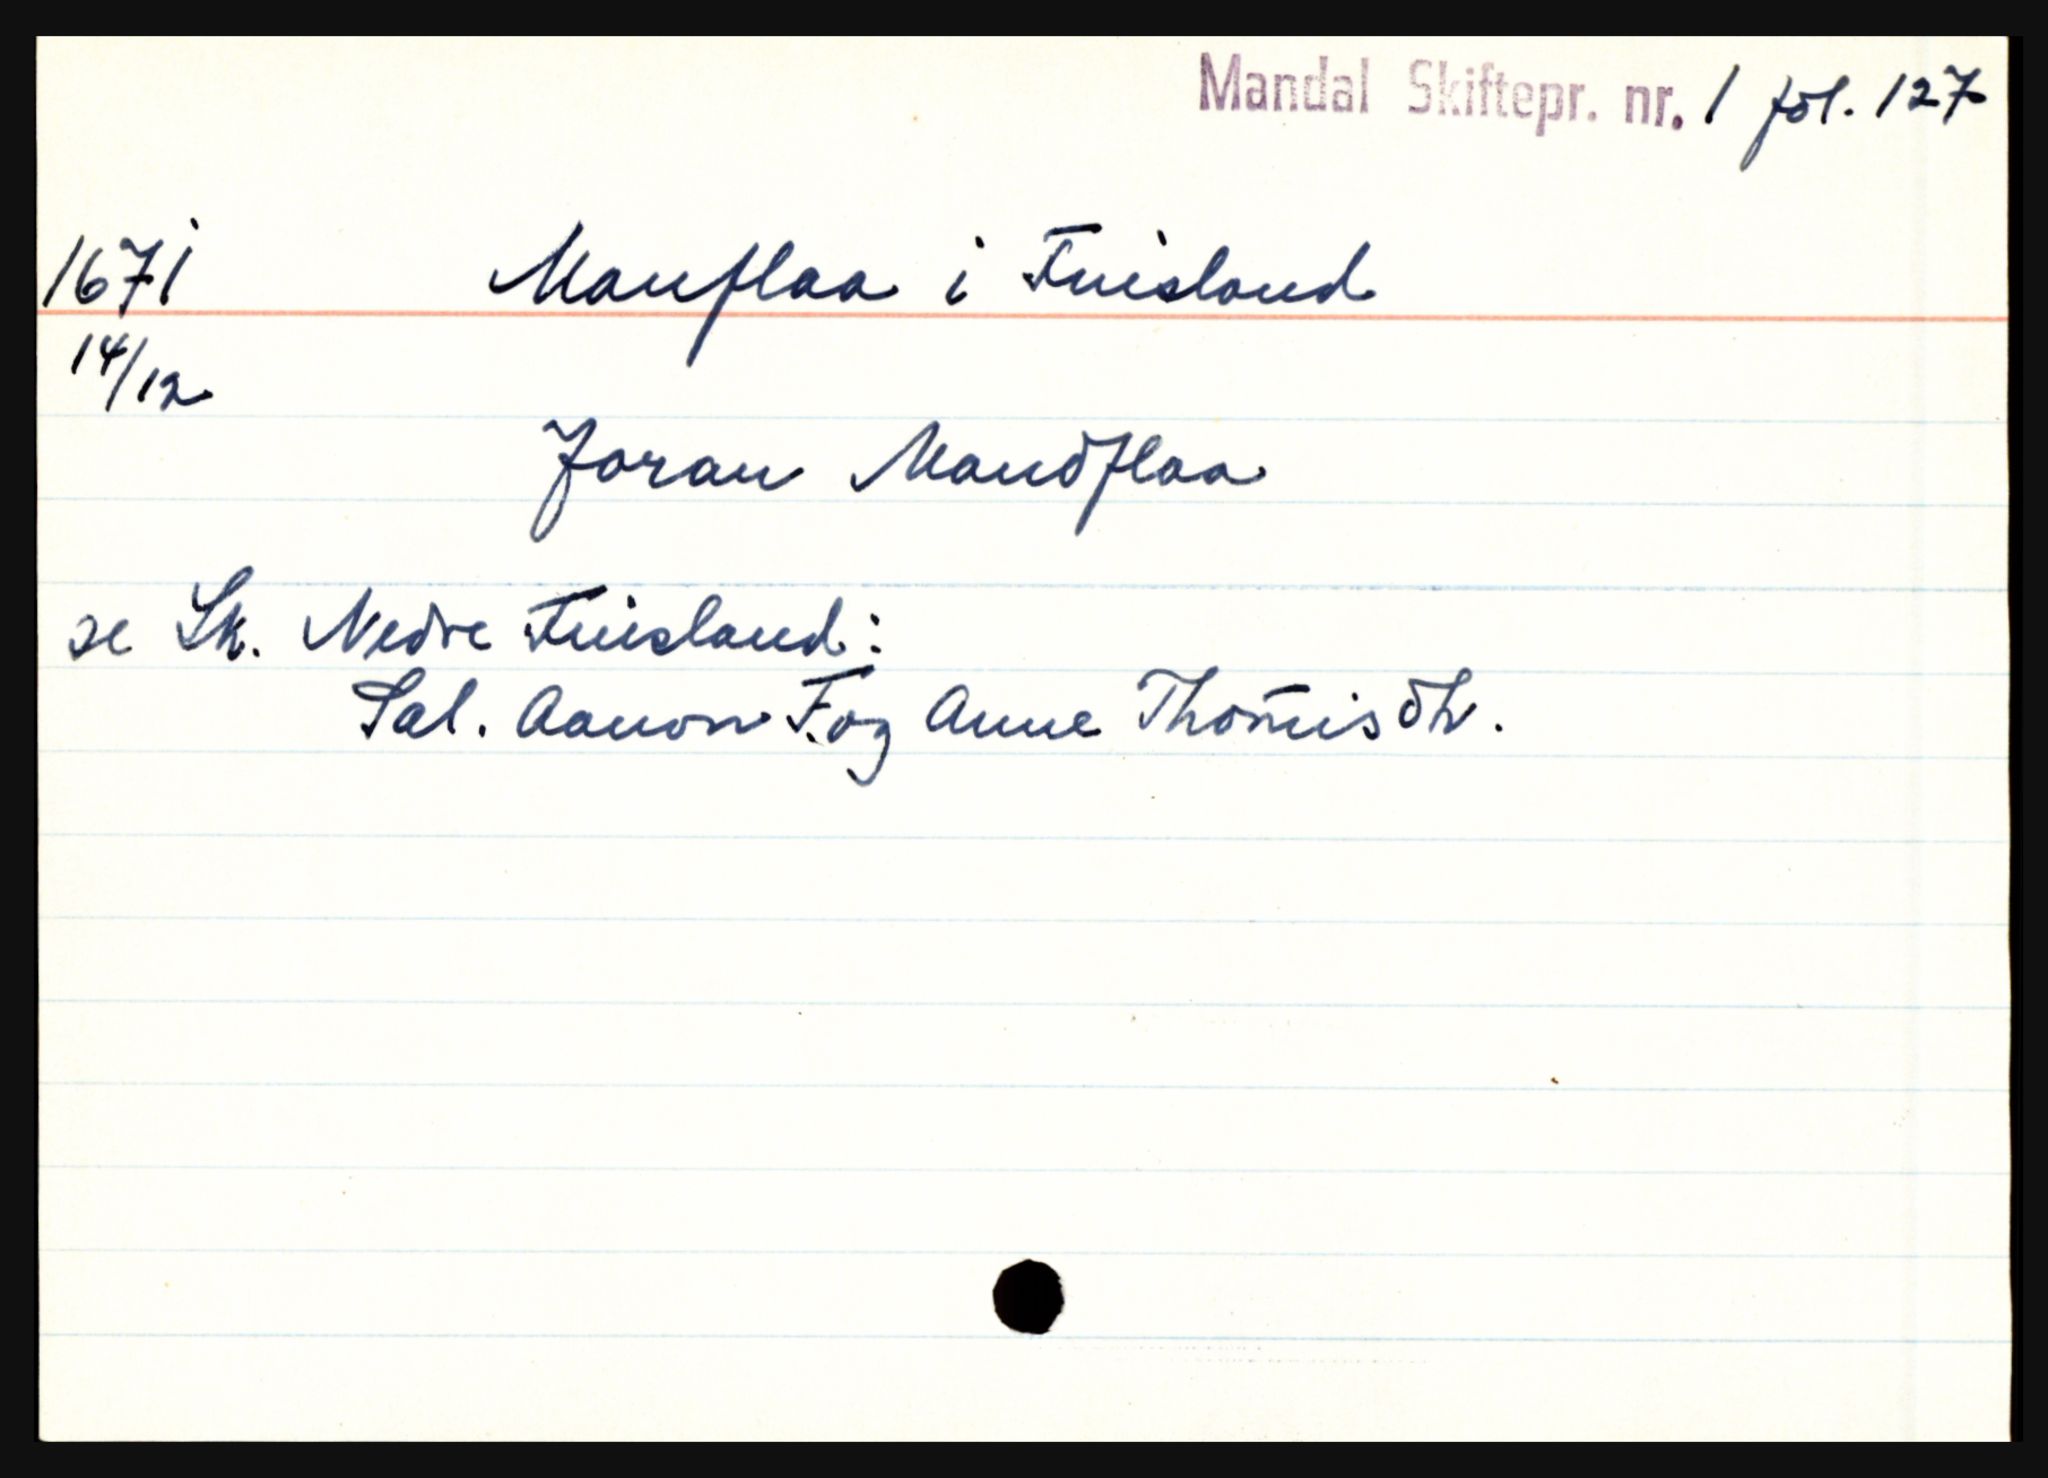 Mandal Skiftepr. nr. 1 fol. 127
1671 Manflaa i Finsland
14/12
Joran Mandflaa
se Sk. Nedre Finsland:
Sal. Aanon F. og Anne Thomisdtr.